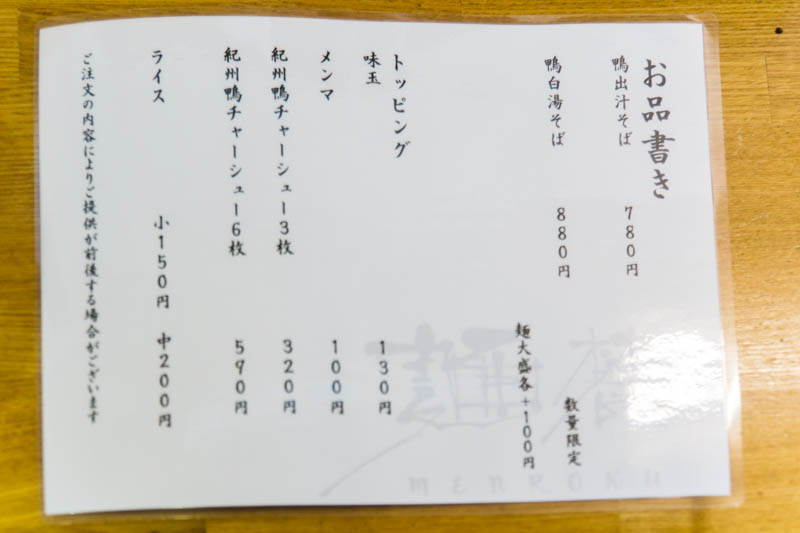 お品書き
鴨出汁そば 780円
鴨白湯そば 880円
数量限定
麺大盛各+100円
トッピング
味玉 130円
メンマ 100円
紀州鴨チャーシュー3枚 320円
紀州鴨チャーシュー6枚 590円
ライス 小150円 中200円
ご注文の内容によりご提供が前後する場合がございます
MENROKU